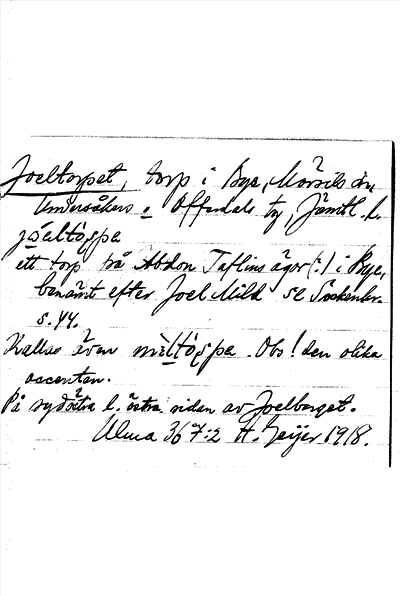 Joeltorpet, torp i Bye, Mörsils sn
Undersåkers o Offerdals tg, Jämtl. l.
ett torp på Abdon Taflins ägor (:) i Bye,
benämt efter Joel Mild se Sockenbr.
s. 44.
Kallas även . Obs! den olika
accenten.
På sydöstra l. östra sidan av Joelberget.
Ulma 367:2 H. Geijer 1918.